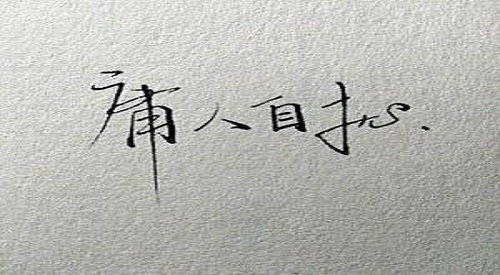 庸人自扰.